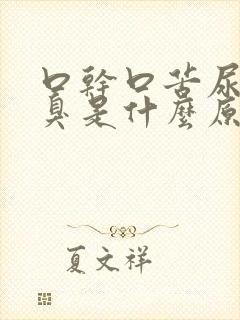 口幹口苦尿
臭是什麼原
夏文祥